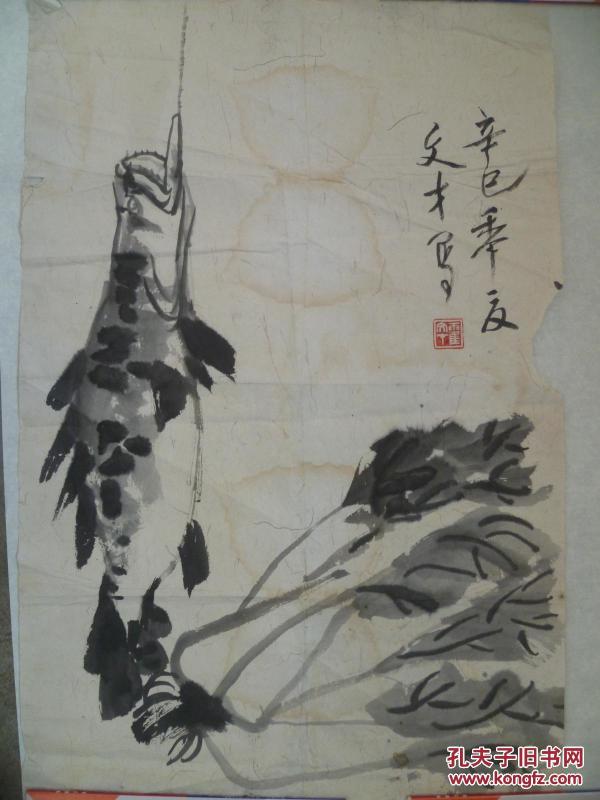 辛巳年夏
文才写
孔夫子旧书网
www.kongfz.com